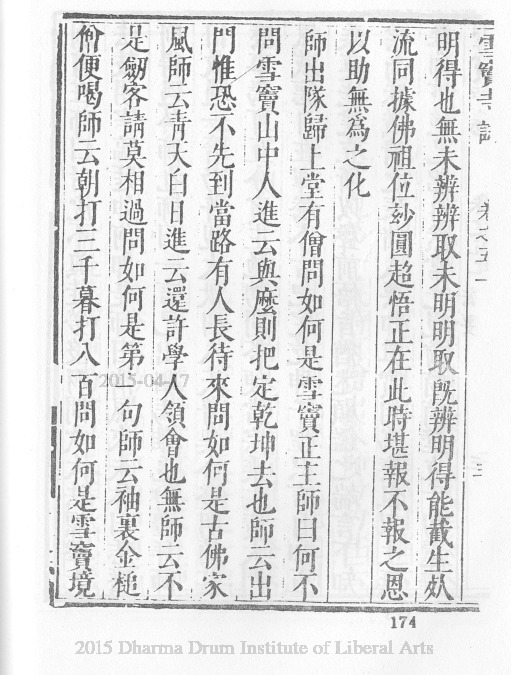 雪竇寺誌
卷之五
三
明得也無未辨辨取未明明取旣辨明得能截生从
流同據佛祖位玅圓超悟正在此時堪報不報之恩
以助無爲之化
師出隊歸上堂有僧問如何是雪竇正主師曰何不
問雪竇山中人進云與麼則把定乾坤去也師云出
門惟恐不先到當路有人長待來問如何是古佛家
風師云青天白日進云還許學人領會也無師云不
是劒客請莫相過問如何是第一句師云袖裏金槌
僧便喝師云朝打三千暮打八百問如何是雪竇境
2015-04-17
174
2015 Dharma Drum Institute of Liberal Arts